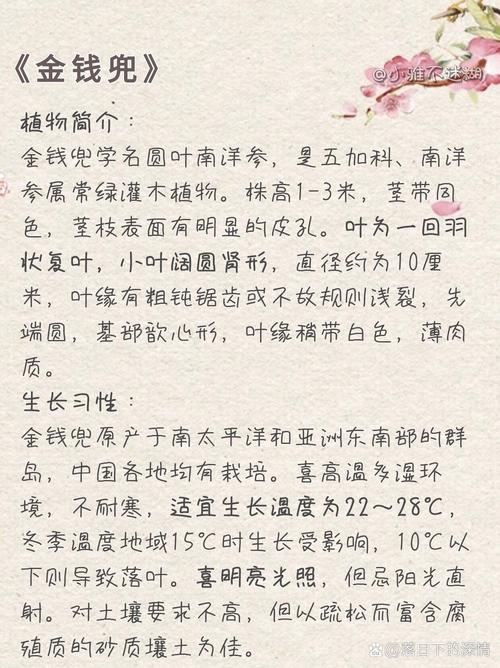 《金钱兜》
@小雅不迷糊
植物简介：
金钱兜学名圆叶南洋参，是五加科、南洋
参属常绿灌木植物。株高1-3米，茎带同
色，茎枝表面有明显的皮孔。叶为一回羽
状复叶，小叶阔圆肾形，直径约为10厘
米，叶缘有粗钝锯齿或不故规则浅裂，先
端圆，基部歆心形，叶缘稍带白色，薄肉
质。
生长习性：
金钱兜原产于南太平洋和亚洲东南部的群
岛，中国各地均有栽培。喜高温多湿环
境，不耐寒，适宜生长温度为22～28℃，
冬季温度地域15℃时生长受影响，10℃以
下则导致落叶。喜明亮光照，但忌阳光直
射。对土壤要求不高，但以疏松而富含腐
殖质的砂质壤土为佳。
@落日下的深情